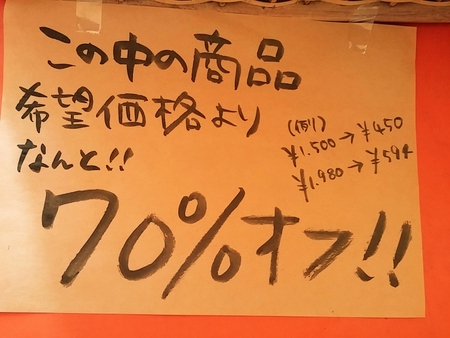 この中の商品
希望価格より
なんと!!
(例)
¥1.500→¥450
¥1.980→¥594
70%オフ!!